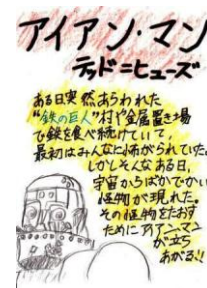 アイアン・マン
テッド=ヒューズ
ある日突然あらわれた
“鉄の巨人”村や金属置き場
で鉄を食べ続けていて、
最初はみんなに怖がられていた。
しかしそんなある日、
宇宙からばかでかい
怪物が現れた。
その怪物をたおす
ためにアイアン・マン
が立ち
あがる!!